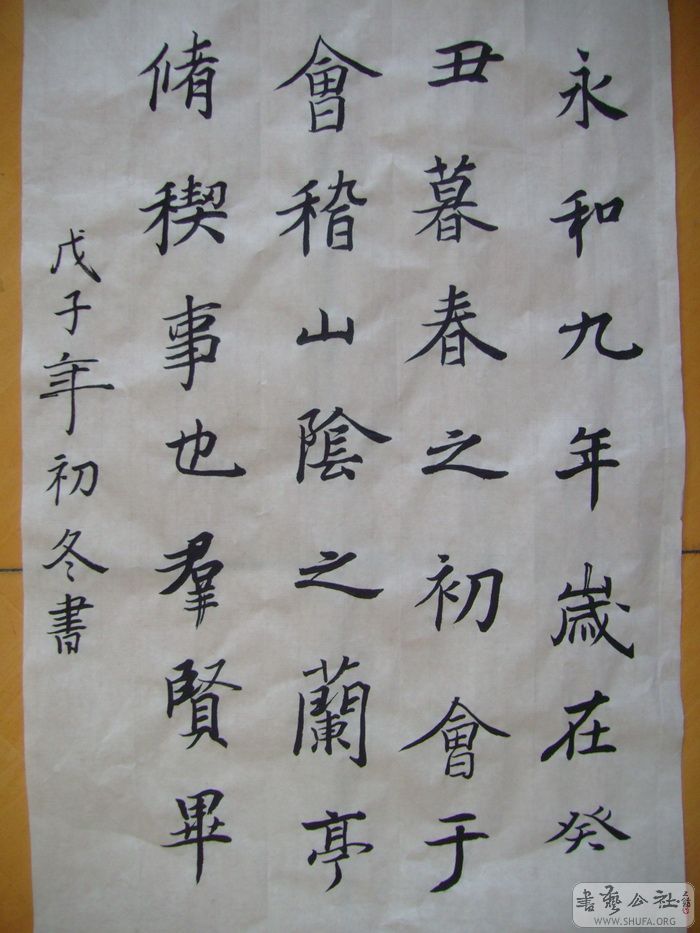 永和九年歲在癸
丑暮春之初會于
會稽山陰之蘭亭
脩稧事也羣賢畢
戊子年初冬書
書藝公社
WWW.SHUFA.ORG